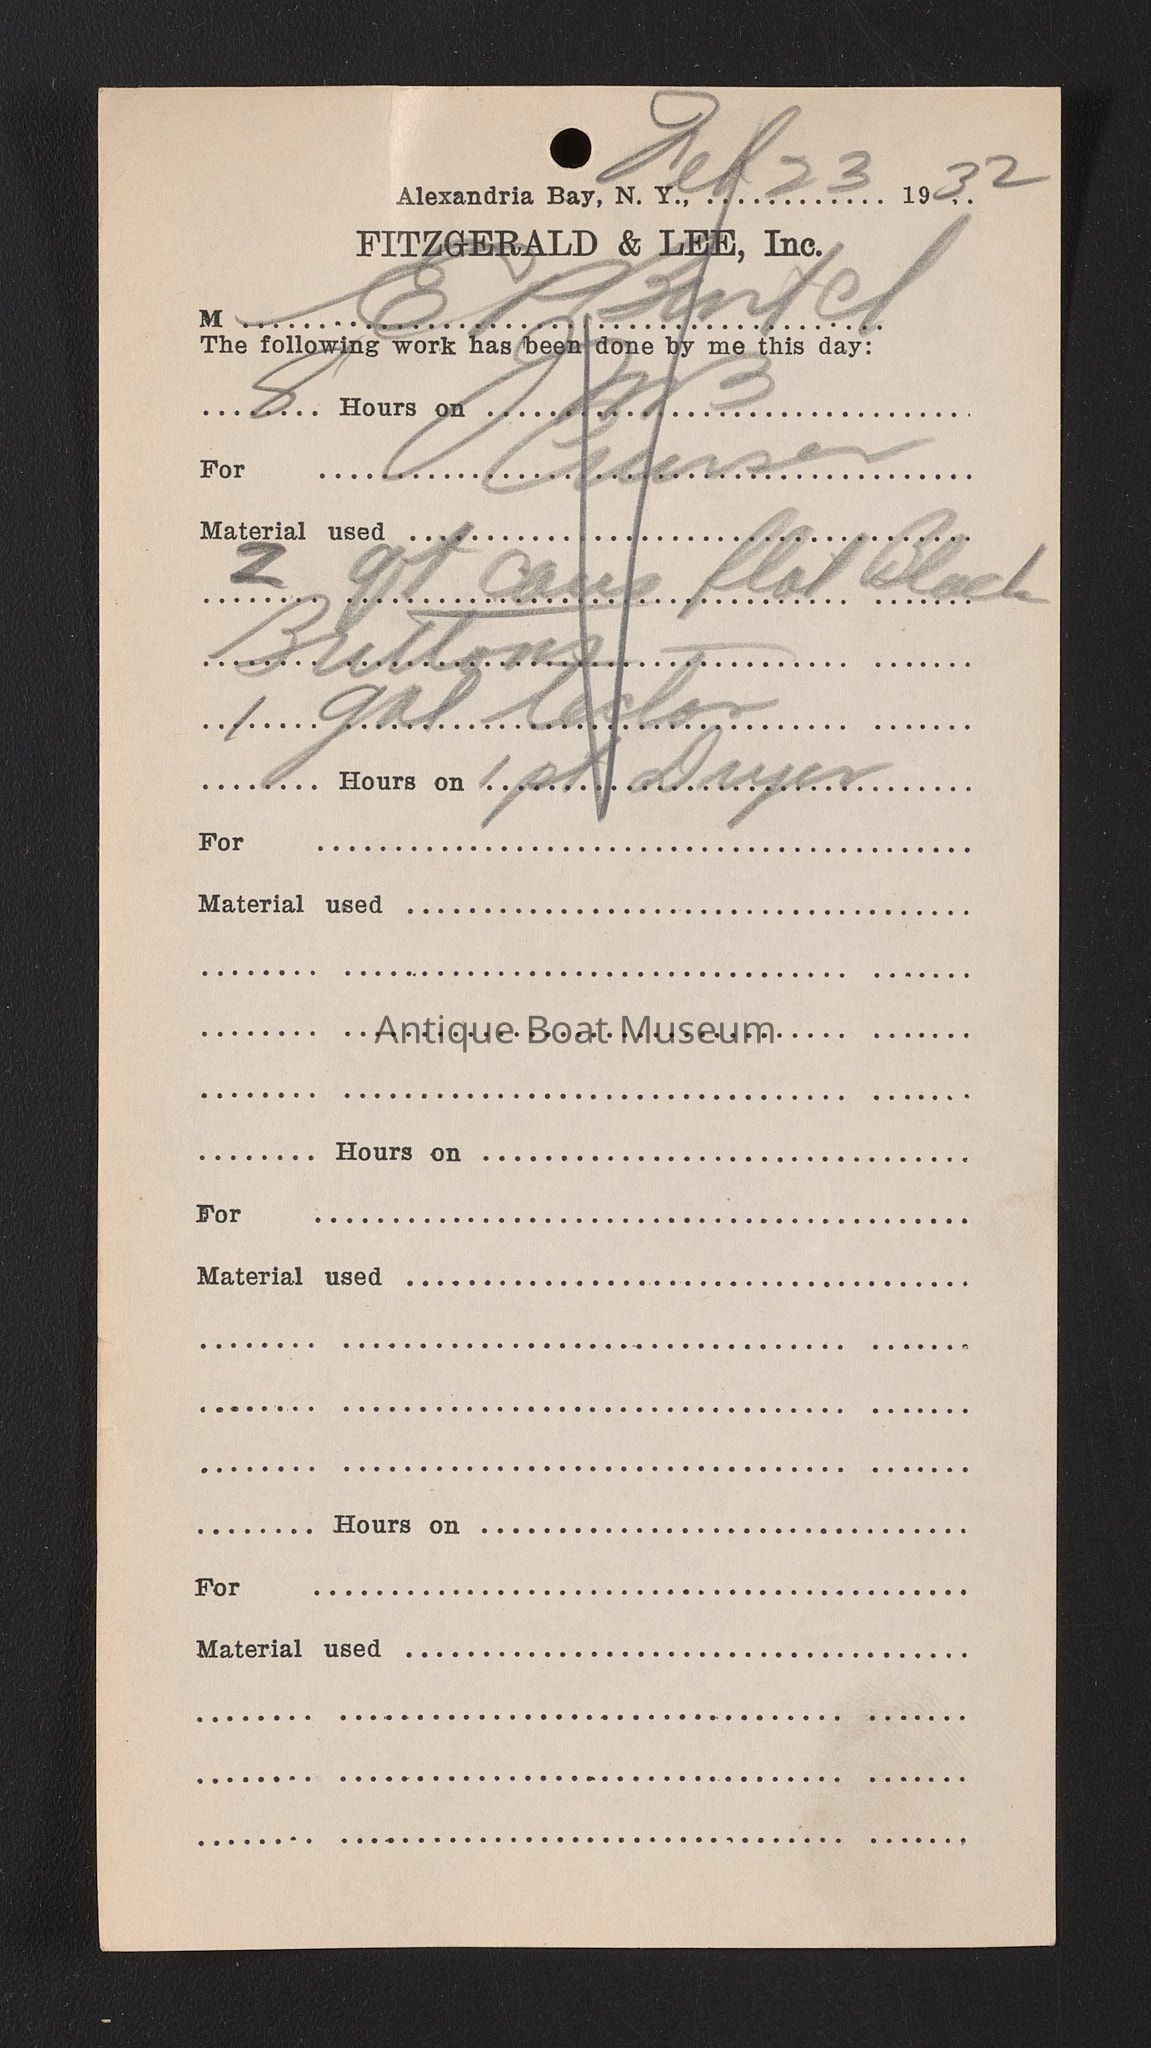 Alexandria Bay, N. Y., Feb 23 1932
FITZGERALD & LEE, Inc.
M E
The following work has been done by me this day:
8 Hours on
For Cruiser
Material used
2 qt cans flat Black
Bruttons
1 gal
Hours on 1 pt Dryer
For
Material used
Antique Boat Museum
Hours on
For
Material used
Hours on
For
Material used